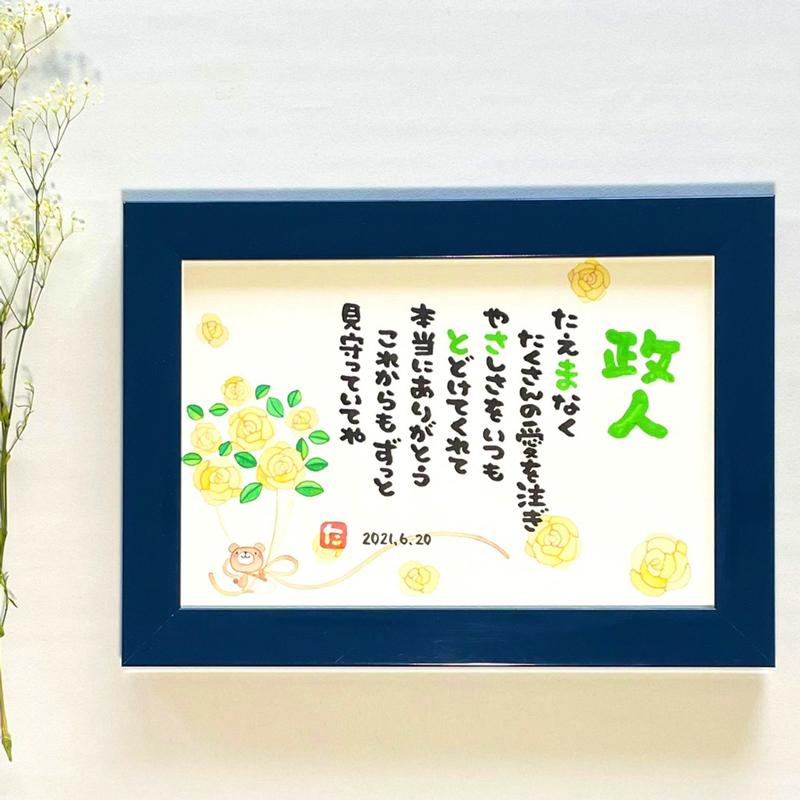 政人
たえまなく
たくさんの愛を注ぎ
やさしさをいつも
とどけてくれて
本当にありがとう
これからもずっと
見守っていてね
2021.6.20
た